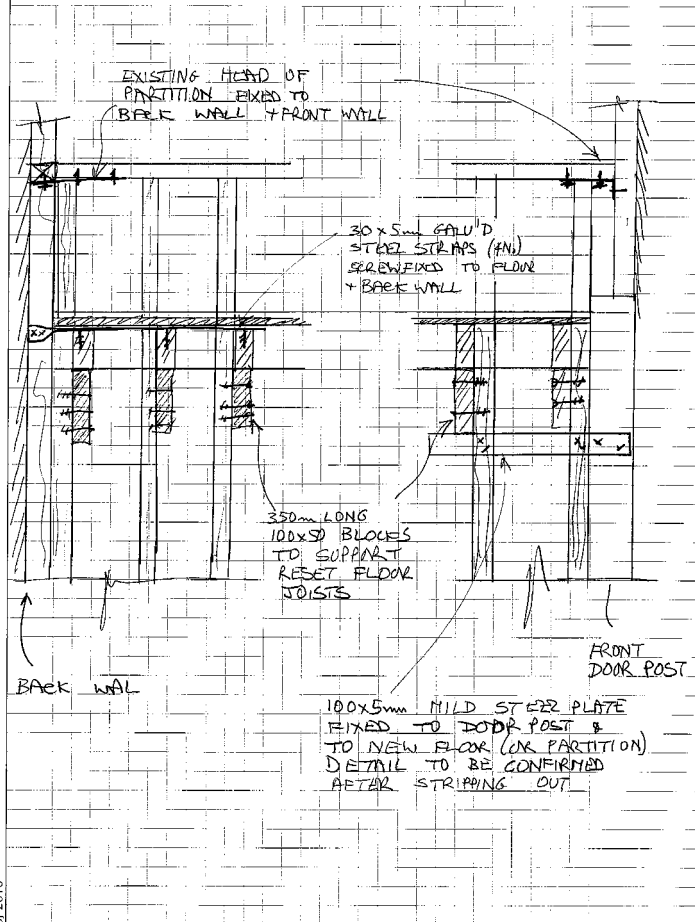 EXISTING HEAD OF
PARTITION FIXED TO
BACK WALL + FRONT WALL
30 x 5mm GALV'D
STEEL STRAPS (4No)
SCREWFIXED TO FLOOR
+ BACK WALL
350mm LONG
100x50 BLOCKS
TO SUPPORT
RESET FLOOR
JOISTS
FRONT
DOOR POST
BACK WAL
100x5mm MILD STEEL PLATE
FIXED TO DOOR POST &
TO NEW FLOOR (OR PARTITION)
DETAIL TO BE CONFIRMED
AFTER STRIPPING OUT